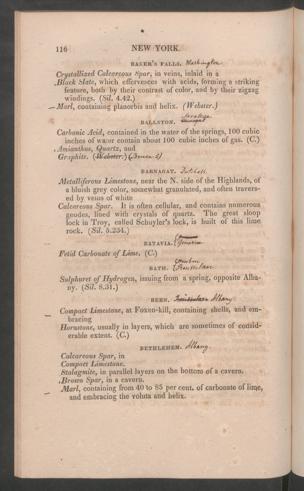 116 NEW YORK.
BAKER'S FALLS. Washington
Crystallized Calcareous Spar, in veins, inlaid in a
Black Slate, which effervesces with acids, forming a striking
feature, both by their contrast of color, and by their zigzag
windings. (Sil. 4.42.)
Marl, containing planorbis and helix. (Webster.)
Saratoga
BALLSTON.
Carbonic Acid, contained in the water of the springs, 100 cubic
inches of water contain about 100 cubic inches of gas. (C.)
Amianthus, Quartz, and
Graphite. (Webster.)
BARNAGAT.
Metalliferous Limestone, near the N. side of the Highlands, of
a bluish grey color, somewhat granulated, and often travers-
ed by veins of white
Calcareous Spar. It is often cellular, and contains numerous
geodes, lined with crystals of quartz. The great sloop
lock in Troy, called Schuyler's lock, is built of this lime
rock. (Sil. 5.254.)
BATAVIA. Genesee
Fetid Carbonate of Lime. (C.)
BATH. Rensselaer
Sulphuret of Hydrogen, issuing from a spring, opposite Alba-
ny. (Sil. 8.31.)
BERN. Albany
Compact Limestone, at Foxen-kill, containing shells, and em-
bracing
Hornstone, usually in layers, which are sometimes of consid-
erable extent. (C.)
BETHLEHEM. Albany
Calcareous Spar, in
Compact Limestone.
Stalagmite, in parallel layers on the bottom of a cavern.
Brown Spar, in a cavern.
Marl, containing from 40 to 85 per cent. of carbonate of lime,
and embracing the voluta and helix.